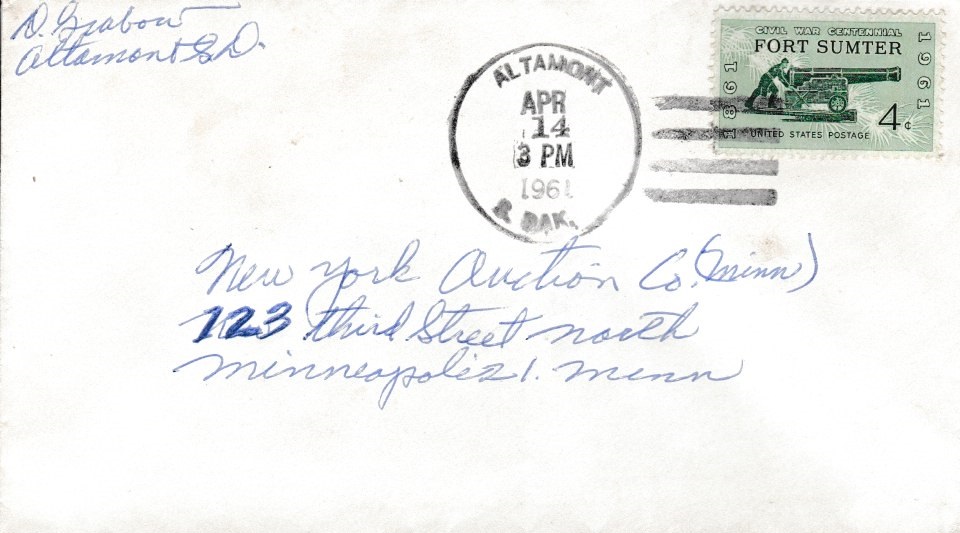 D. Grabow
Altamont S.D.
ALTAMONT
APR
14
3 PM
1961
S. DAK.
CIVIL WAR CENTENNIAL
FORT SUMTER
1861
1961
4¢
UNITED STATES POSTAGE
New York Auction Co. (Minn)
123 third Street north
Minneapolis 1. Minn